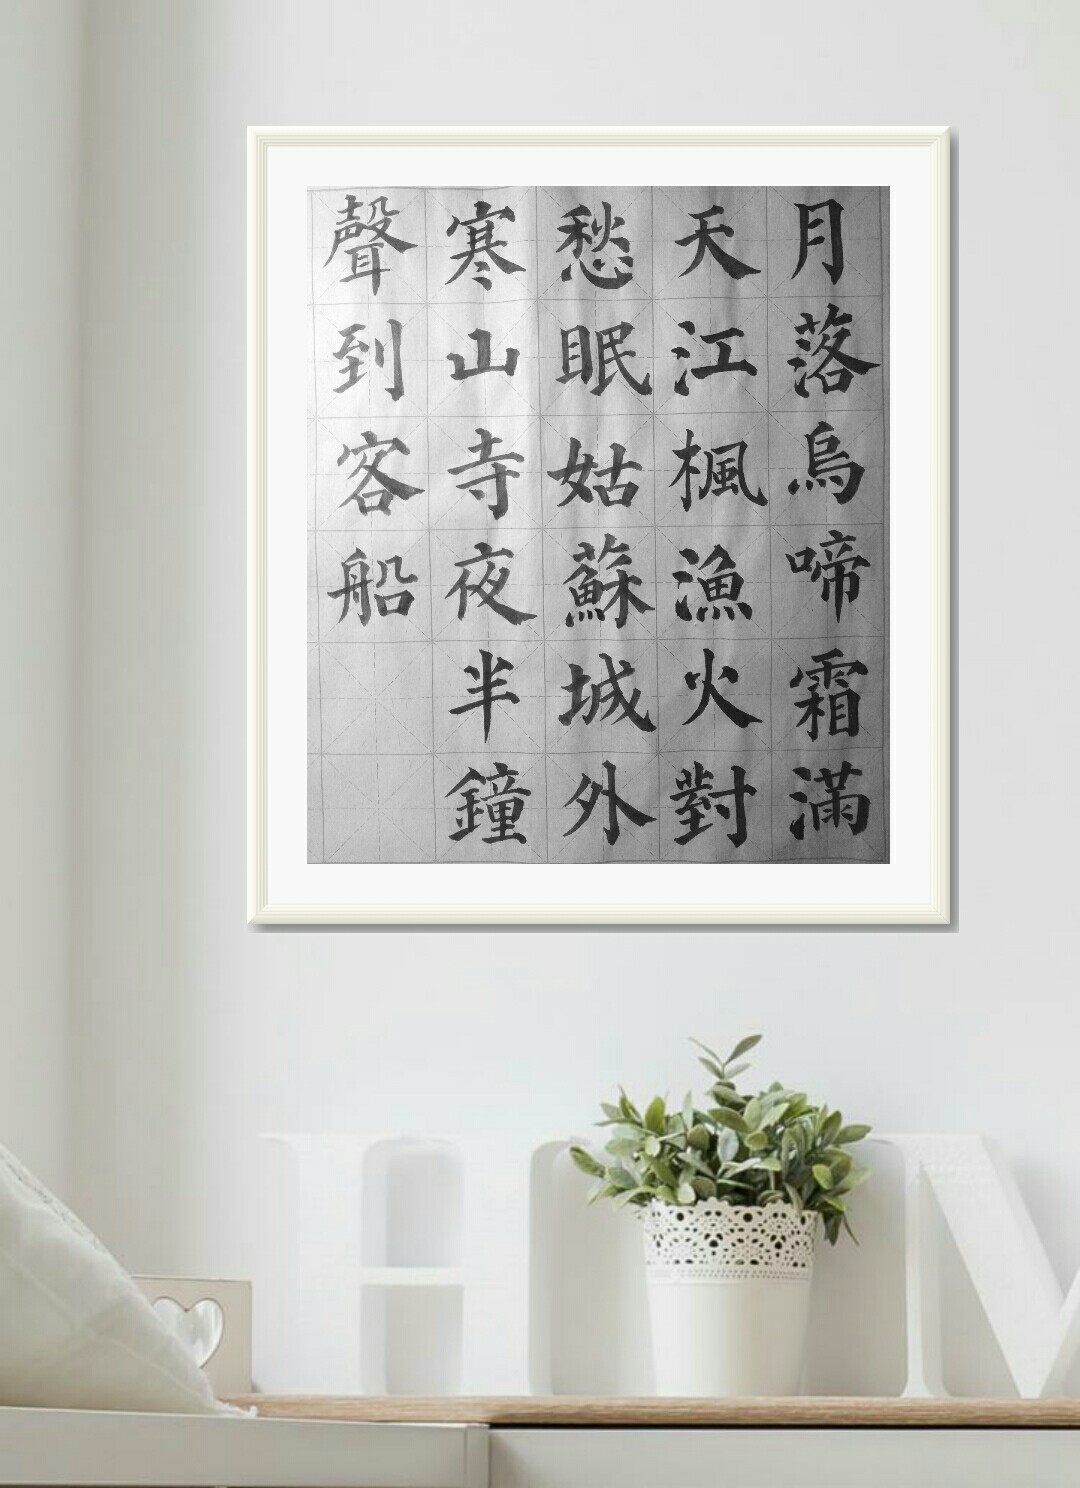 月落烏啼霜滿
天江楓漁火對
愁眠姑蘇城外
寒山寺夜半鐘
聲到客船
HOM